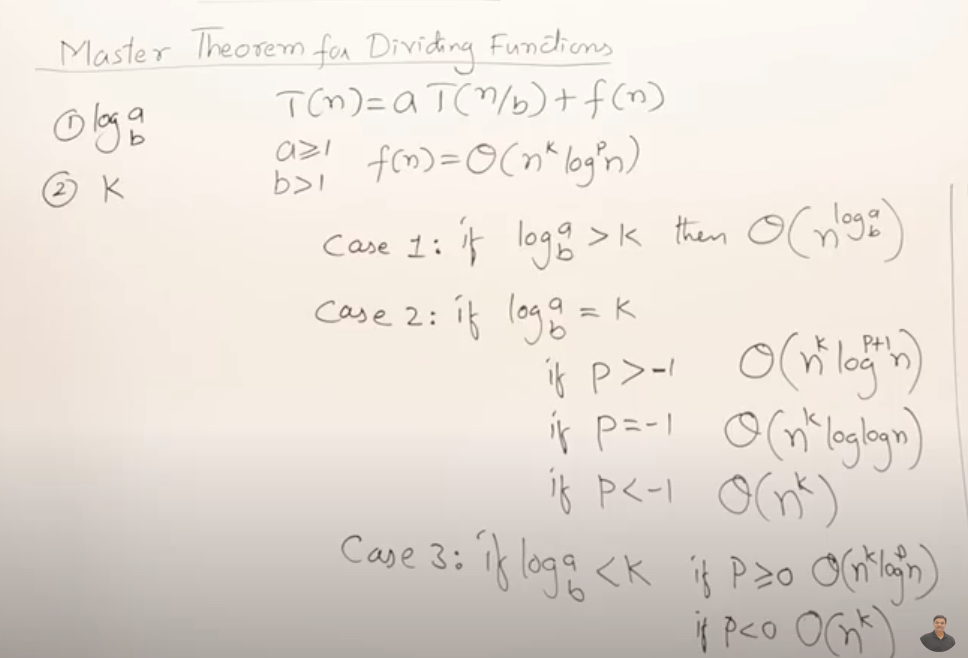 Master Theorem for Dividing Functions
① log_b^a
T(n) = a T(n/b) + f(n)
a≥1
b>1
f(n) = Θ(n^k log^p n)
② K
Case 1: if log_b^a > K then Θ(n^{log_b^a})
Case 2: if log_b^a = K
if P > -1 Θ(n^k log^{P+1} n)
if P = -1 Θ(n^k loglogn)
if P < -1 Θ(n^k)
Case 3: if log_b^a < K if P ≥ 0 Θ(n^k log^p n)
if P < 0 O(n^k)